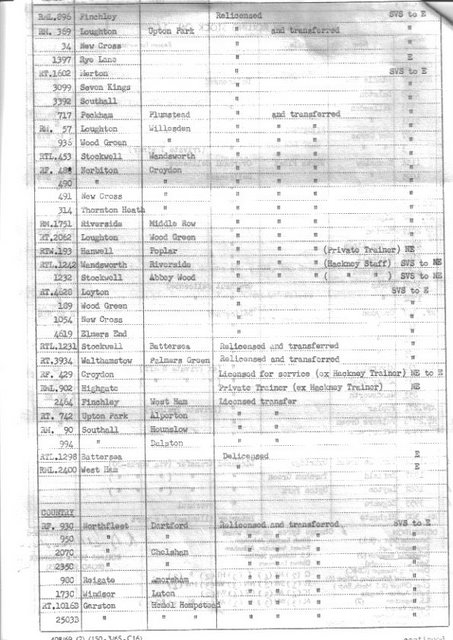 RML.896 Finchley Relicensed SVS to E
RM. 369 Loughton Upton Park " and transferred "
34 New Cross " "
1397 Rye Lane " E
RT.1602 Merton " SVS to E
3099 Seven Kings " "
3392 Southall " "
717 Peckham Plumstead " and transferred "
RM. 57 Loughton Willesden " " " "
936 Wood Green " " " " "
RTL.453 Stockwell Wandsworth " " " "
RF. Norbiton Croydon " " " "
490 " " " " " "
491 New Cross " " " " "
314 Thornton Heath " " " " "
RM.1751 Riverside Middle Row " " " "
RT.2062 Loughton Wood Green " " " "
RTW.193 Hanwell Poplar " " " (Private Trainer) NE
RTL.1242 Wandsworth Riverside " " " (Hackney Staff) SVS to NE
1232 Stockwell Abbey Wood " " " ( " " ) SVS to NE
RT.4628 Leyton " SVS to E
189 Wood Green " "
1054 New Cross " "
4619 Elmers End " "
RTL.1231 Stockwell Battersea Relicensed and transferred "
RT.3934 Walthamstow Palmers Green Relicensed and transferred "
RF. 429 Croydon Licensed for service (ex Hackney Trainer) NE to E
RML.902 Highgate Private Trainer (ex Hackney Trainer) NE
2464 Finchley West Ham Licensed transfer
RT. 742 Upton Park Alperton " "
RM. 90 Southall Hounslow " "
994 " Dalston " "
RTL.1298 Battersea Delicensed E
RML.2400 West Ham " E
COUNTRY
RF. 930 Northfleet Dartford Relicensed and transferred SVS to E
950 " " " " " "
2070 " Chelsham " " " "
2350 " " " " " "
900 Reigate Amersham " " " "
1730 Windsor Luton " " " "
RT.1016B Garston Hemel Hempstead " " " "
2503B " " " " " " "
continued